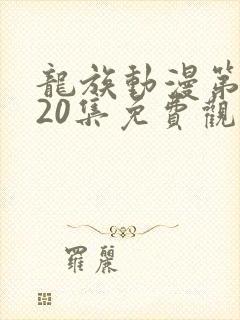 龍族動漫第
20集免費觀
羅麗